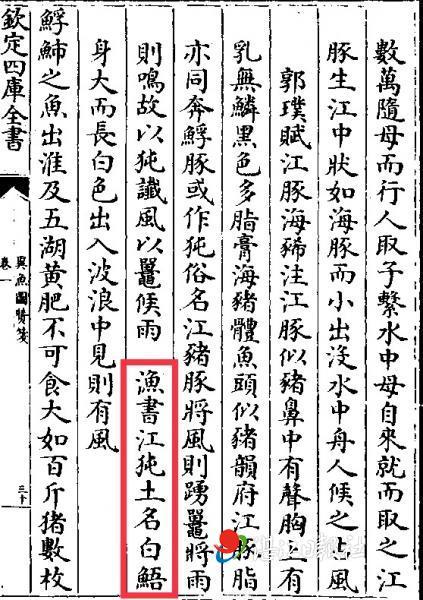 數萬隨母而行人取子繫水中母自來就而取之江
豚生江中狀如海豚而小出沒水中舟人候之占風
郭璞賦江豚海狶注江豚似豬鼻中有聲胸上有
乳無鱗黑色多脂膏海豬體魚頭似豬韻府江豚脂
亦同奔䱐豚或作㹠俗名江豬豚將風則踴鼉將雨
則鳴故以㹠讖風以鼉候雨 漁書江㹠土名白鯃
身大而長白色出入波浪中見則有風
䱐魳之魚出淮及五湖黃肥不可食大如百斤猪數枚
欽定四庫全書
異魚圖贊箋
卷一
三十